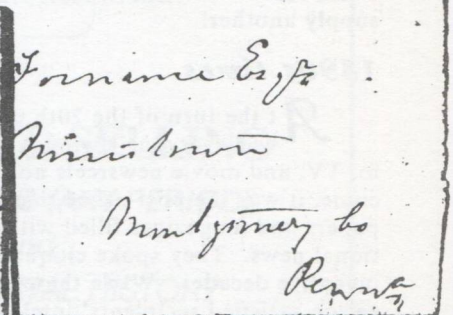 Fornance Esqr
Norristown
Montgomery Co
Penna